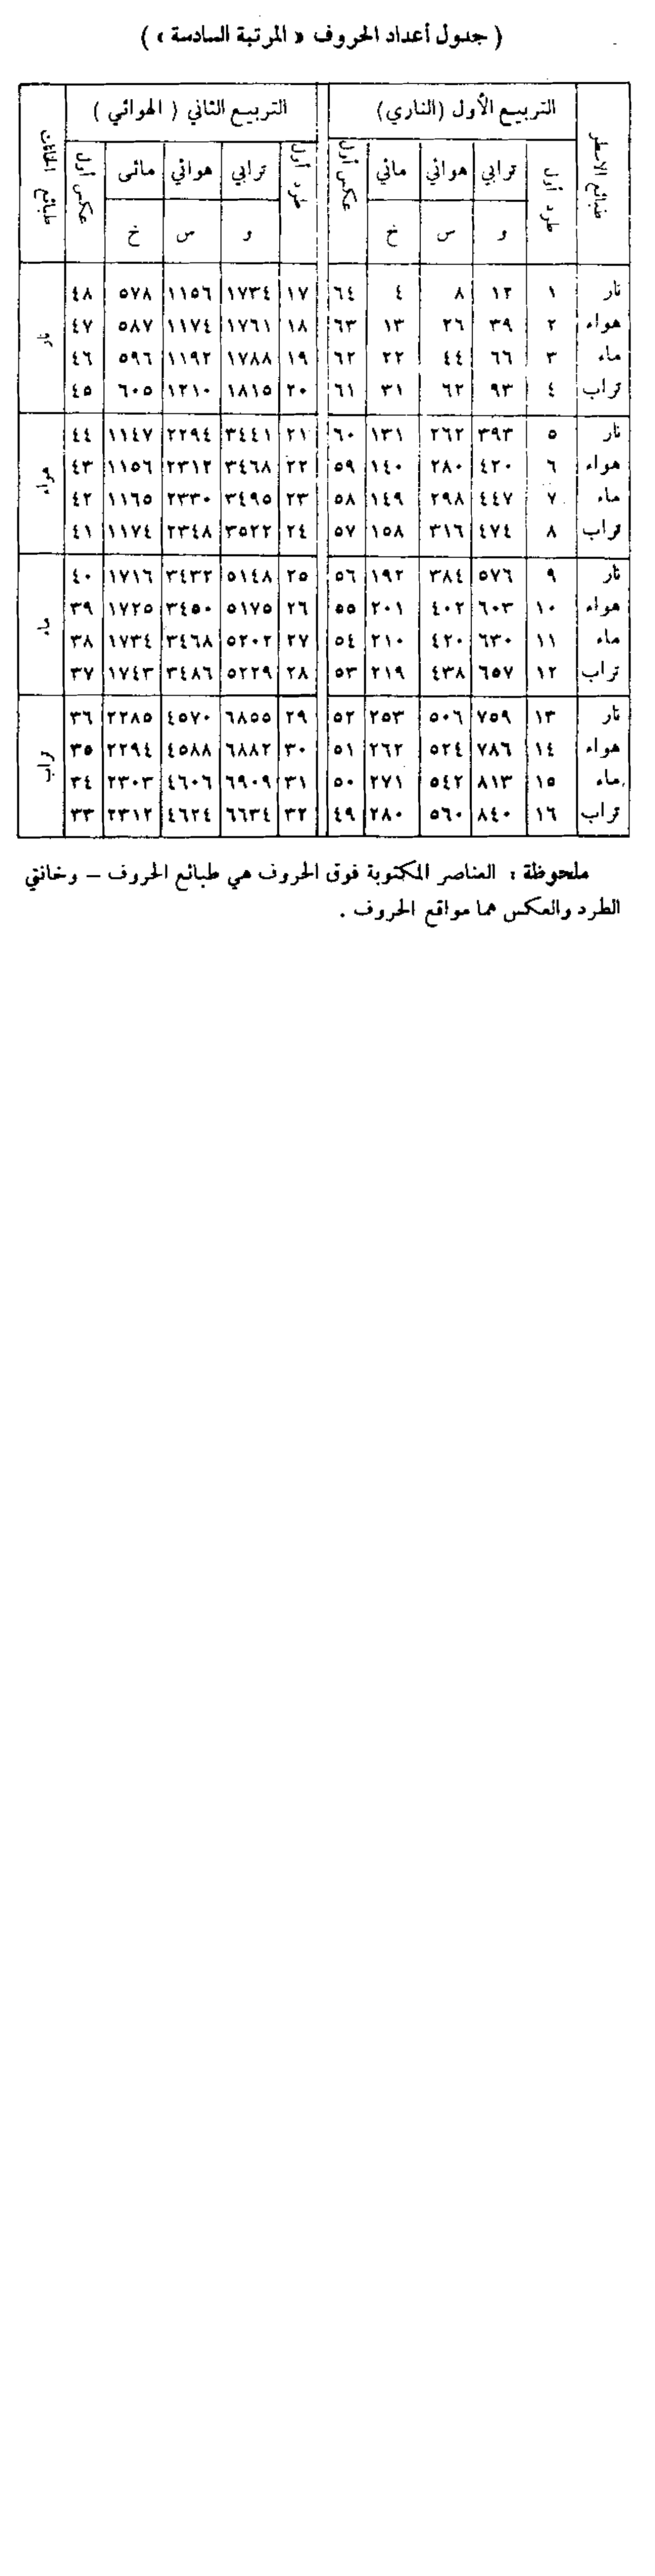 ( جدول أعداد الحروف « المرتبة السادسة » )
طبائع الاسطر التربيع الأول (الناري) التربيع الثاني ( الهوائي ) طبائع الخانات
طرد أول ترابي هوائي مائي عكس أول طرد أول ترابي هوائي مائى عكس أول
و س خ و س خ
نار ١ ١٢ ٨ ٤ ٦٤ ١٧ ١٧٣٤ ١١٥٦ ٥٧٨ ٤٨ نار
هواء ٢ ٣٩ ٢٦ ١٣ ٦٣ ١٨ ١٧٦١ ١١٧٤ ٥٨٧ ٤٧
ماء ٣ ٦٦ ٤٤ ٢٢ ٦٢ ١٩ ١٧٨٨ ١١٩٢ ٥٩٦ ٤٦
تراب ٤ ٩٣ ٦٢ ٣١ ٦١ ٢٠ ١٨١٥ ١٢١٠ ٦٠٥ ٤٥
نار ٥ ٣٩٣ ٢٦٢ ١٣١ ٦٠ ٢١ ٣٤٤١ ٢٢٩٤ ١١٤٧ ٤٤ هواء
هواء ٦ ٤٢٠ ٢٨٠ ١٤٠ ٥٩ ٢٢ ٣٤٦٨ ٢٣١٢ ١١٥٦ ٤٣
ماء ٧ ٤٤٧ ٢٩٨ ١٤٩ ٥٨ ٢٣ ٣٤٩٥ ٢٣٣٠ ١١٦٥ ٤٢
تراب ٨ ٤٧٤ ٣١٦ ١٥٨ ٥٧ ٢٤ ٣٥٢٢ ٢٣٤٨ ١١٧٤ ٤١
نار ٩ ٥٧٦ ٣٨٤ ١٩٢ ٥٦ ٢٥ ٥١٤٨ ٣٤٣٢ ١٧١٦ ٤٠ ماء
هواء ١٠ ٦٠٣ ٤٠٢ ٢٠١ ٥٥ ٢٦ ٥١٧٥ ٣٤٥٠ ١٧٢٥ ٣٩
ماء ١١ ٦٣٠ ٤٢٠ ٢١٠ ٥٤ ٢٧ ٥٢٠٢ ٣٤٦٨ ١٧٣٤ ٣٨
تراب ١٢ ٦٥٧ ٤٣٨ ٢١٩ ٥٣ ٢٨ ٥٢٢٩ ٣٤٨٦ ١٧٤٣ ٣٧
نار ١٣ ٧٥٩ ٥٠٦ ٢٥٣ ٥٢ ٢٩ ٦٨٥٥ ٤٥٧٠ ٢٢٨٥ ٣٦ تراب
هواء ١٤ ٧٨٦ ٥٢٤ ٢٦٢ ٥١ ٣٠ ٦٨٨٢ ٤٥٨٨ ٢٢٩٤ ٣٥
ماء ١٥ ٨١٣ ٥٤٢ ٢٧١ ٥٠ ٣١ ٦٩٠٩ ٤٦٠٦ ٢٣٠٣ ٣٤
تراب ١٦ ٨٤٠ ٥٦٠ ٢٨٠ ٤٩ ٣٢ ٦٦٣٤ ٤٦٢٤ ٢٣١٢ ٣٣
ملحوظة : العناصر المكتوبة فوق الحروف هي طبائع الحروف – وخانتي
الطرد والعكس هما مواقع الحروف .